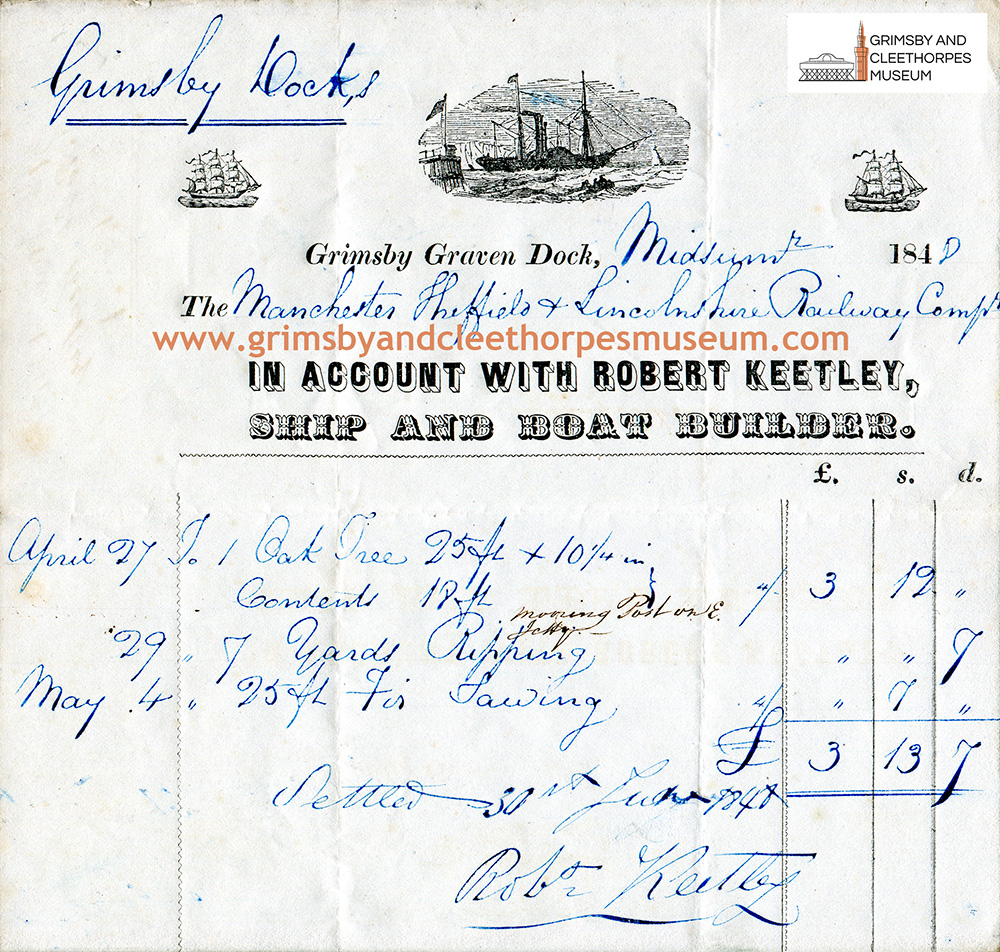 Grimsby Docks
GRIMSBY AND
CLEETHORPES
MUSEUM
Grimsby Graven Dock, Midsumr 1848
The Manchester Sheffield & Lincolnshire Railway Compy
www.grimsbyandcleethorpesmuseum.com
IN ACCOUNT WITH ROBERT KEETLEY,
SHIP AND BOAT BUILDER.
£. s. d.
April 27 To 1 Oak Tree 25 ft + 10 1/4 in
Contents 18 ft 4/ 3 12 "
mooring Post on E.
Jetty
29 " 7 Yards Ripping " " 7
May 4 " 25 ft Fir Sawing " "
£ 3 13 7
Settled 30 1848
Robt Keetley